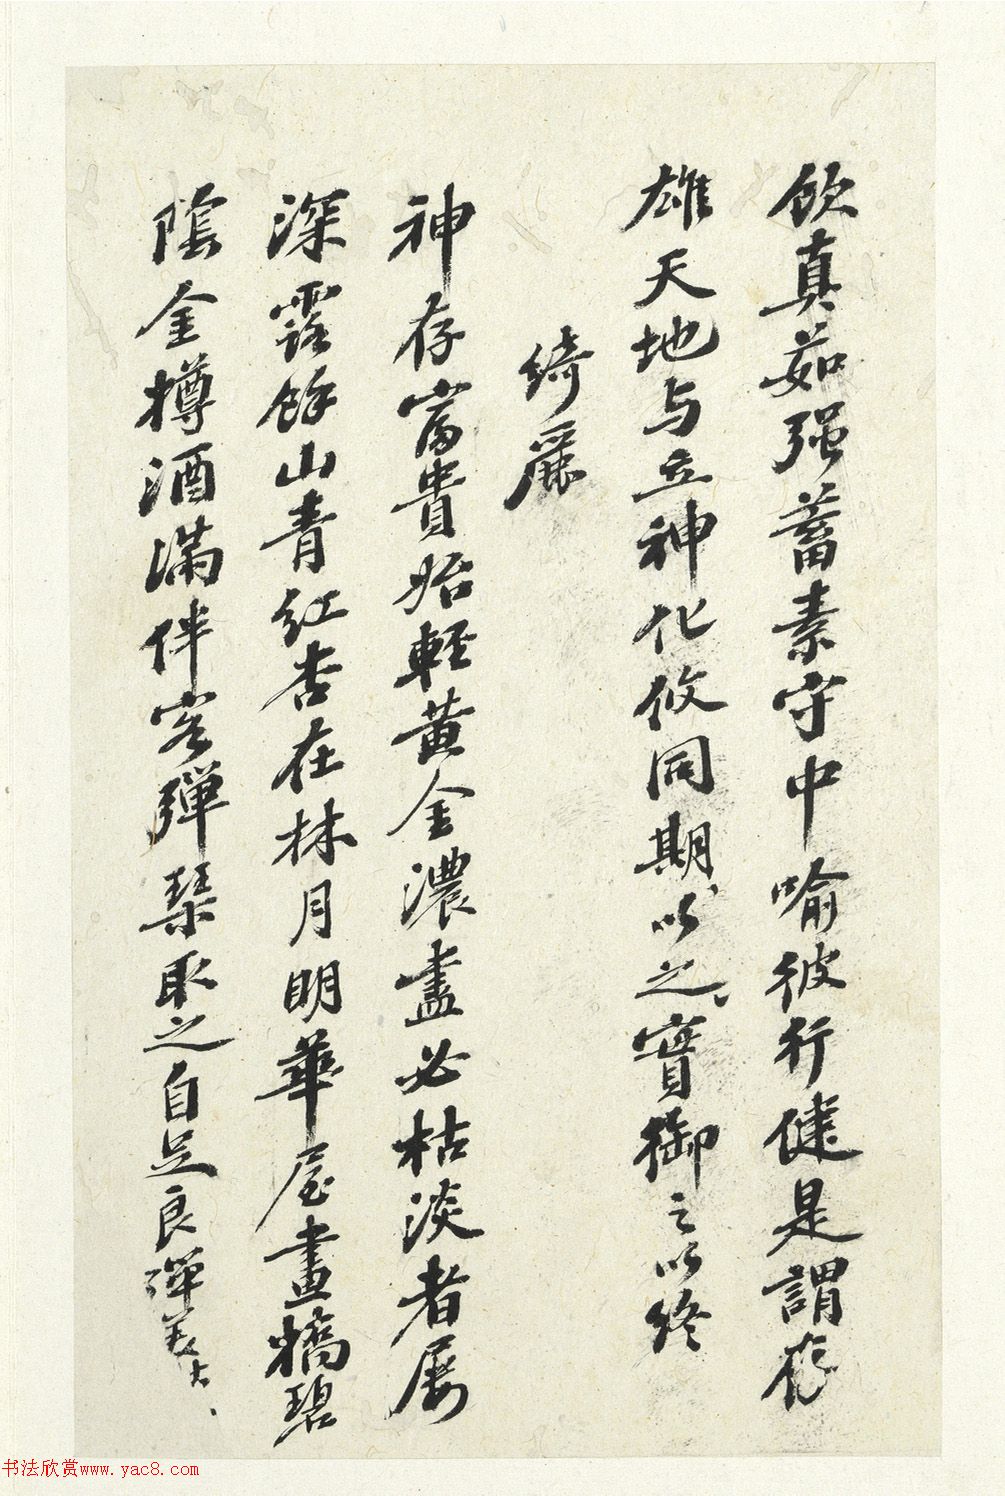 飲真茹强蓄素守中喻彼行健是謂存
雄天地与立神化攸同期以之實御之以終
綺麗
神存富貴始輕黄金濃盡必枯淡者屡
深露餘山青紅杏在林月明華屋畫橋碧
陰金樽酒滿伴客彈琴取之自足良彈美
书法欣赏www.yac8.com